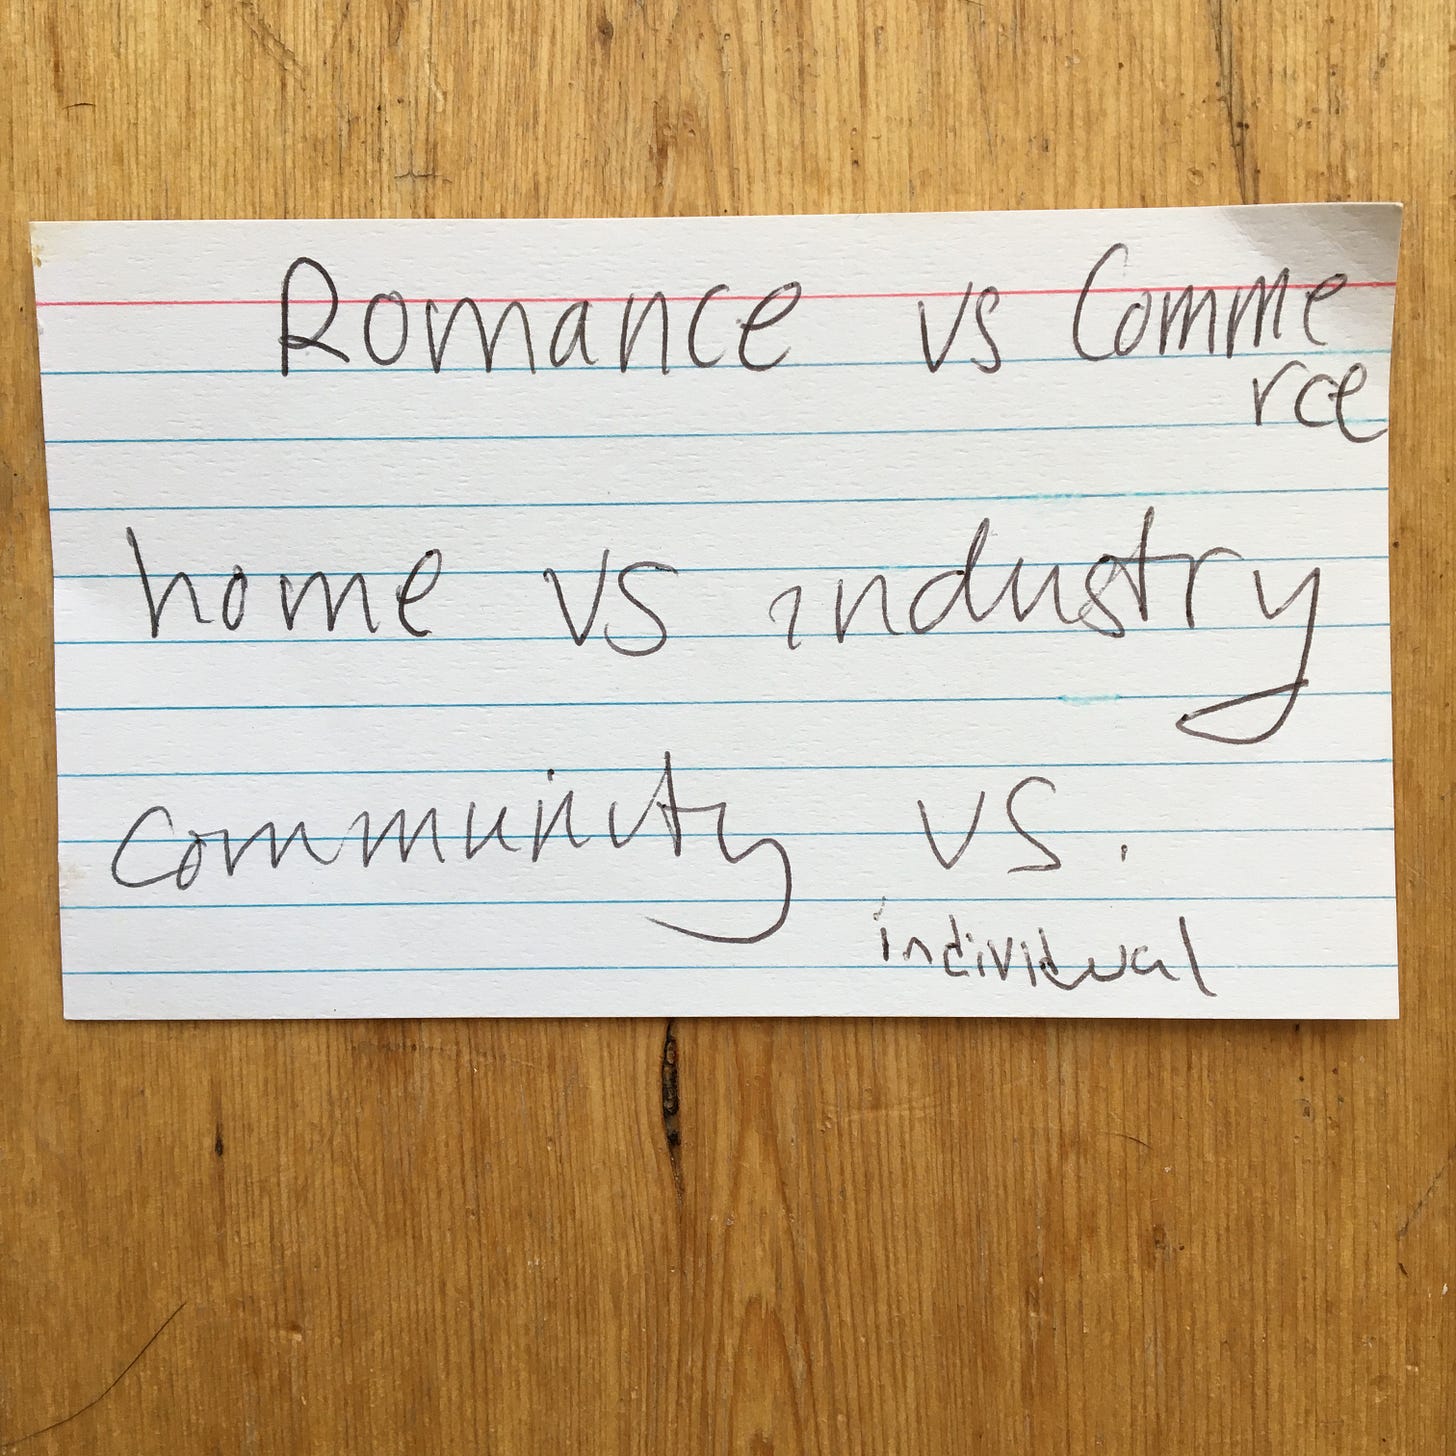 Romance vs Comme
rce
home vs industry
community vs.
individual